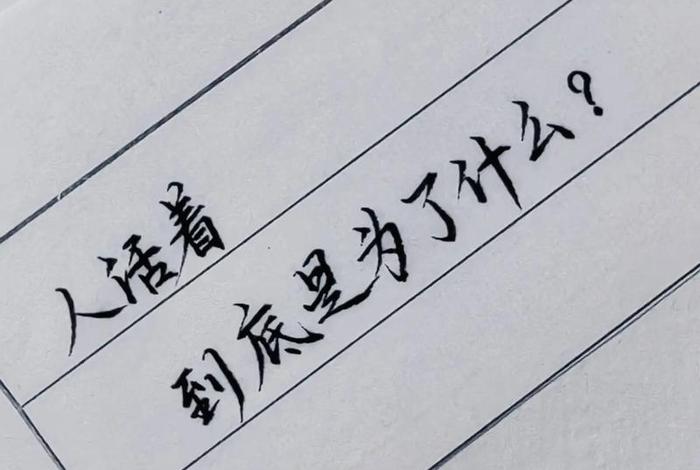 人活着
到底是为了什么?